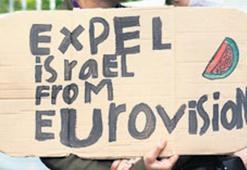 EXPEL
iSRaEL
FROM
EUROViSION